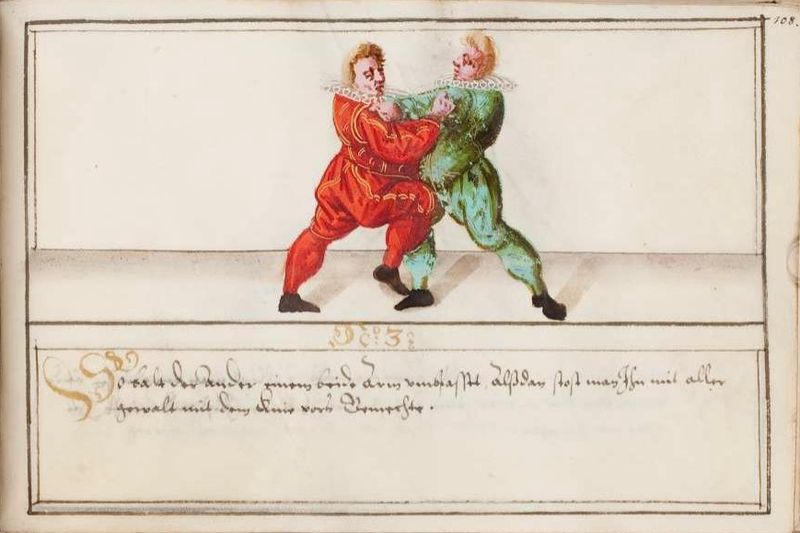 108.
No: 3:
So balt der Ander einem beide Arm umbfasst, Alßdan stost man Ihn mit aller
gewalt mit dem Knie vors Gemechte.